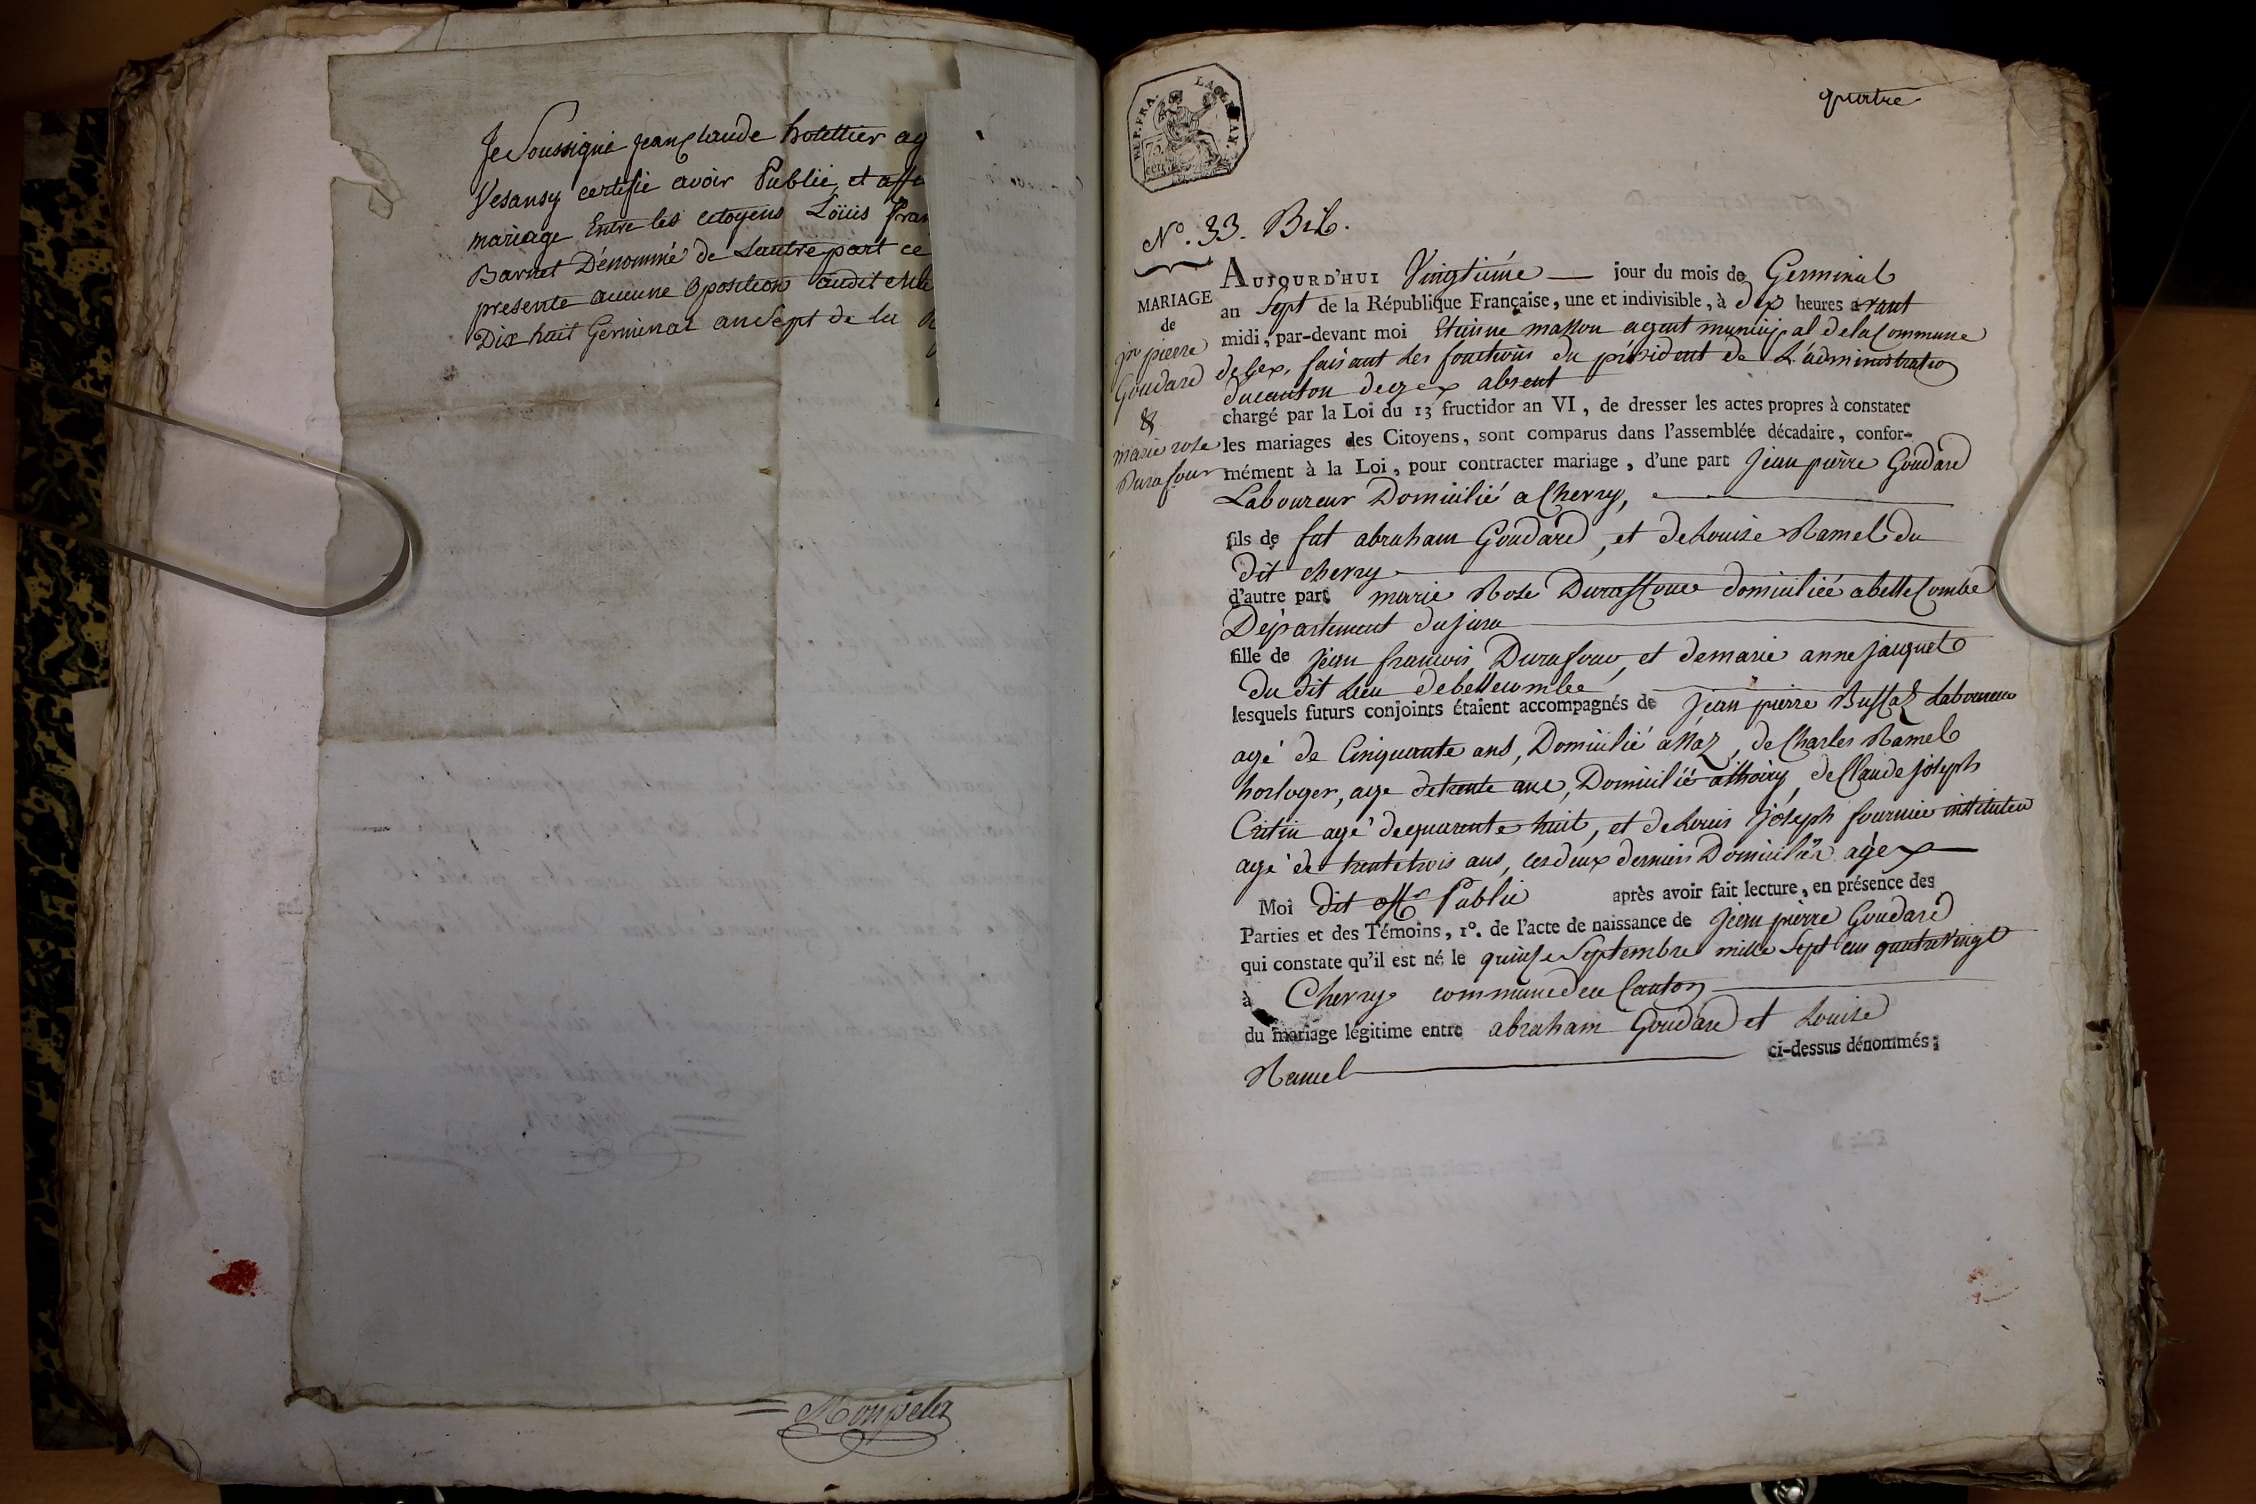 Je Soussigné jean Claude hotellier ag
Vesansy certifie avoir Publié, et affi
mariage Entre les citoyens Löuis fran
Barnet Dénommé de Lautre part ce
presente aucune oposition audit
Dix huit Germinal an Sept de la R
Monpela
quatre
REP. FRA.
75
cent
N°. 33. Bib.
MARIAGE
de
jn pierre
Goudard
&
marie rose
Durafour
AUJOURD'HUI Vingtiéme jour du mois de Germinal
an Sept de la République Française, une et indivisible, à dix heures avant
midi, par-devant moi Etienne masson agent municipal de la Commune
de Gex, faisant les fonctions du président de L'administration
du canton de gex absent
chargé par la Loi du 13 fructidor an VI, de dresser les actes propres à constater
les mariages des Citoyens, sont comparus dans l'assemblée décadaire, confor-
mément à la Loi, pour contracter mariage, d'une part Jean pierre Goudard
Laboureur Domicilié a Chevry,
fils de fut abraham Goudard, et de Louise Ramel du
dit chevry
d'autre part marie Rose Duraffour domiciliée a belleCombe
Département du jura
fille de Jean francois Durafour, et de marie anne jaquet
du dit Lieu de bellecombe
lesquels futurs conjoints étaient accompagnés de Jean pierre Bussaz Laboureur
agé de Cinquante ans, Domicilié a Naz, de Charles Ramel
horloger, age de trente ans, Domicilié a thoiry, de Claude joseph
Critin agé de quarente huit, et de Louis joseph fournier instituteur
agé de trente trois ans, ces deux derniers Domiciliés a gex
Moi dit off. Public après avoir fait lecture, en présence des
Parties et des Témoins, 1°. de l'acte de naissance de Jean pierre Goudard
qui constate qu'il est né le quinze Septembre mille sept cen quatre vingt
à Chevry commune de ce Canton
du mariage légitime entre abraham Goudard et Louise
Ramel ci-dessus dénommés;